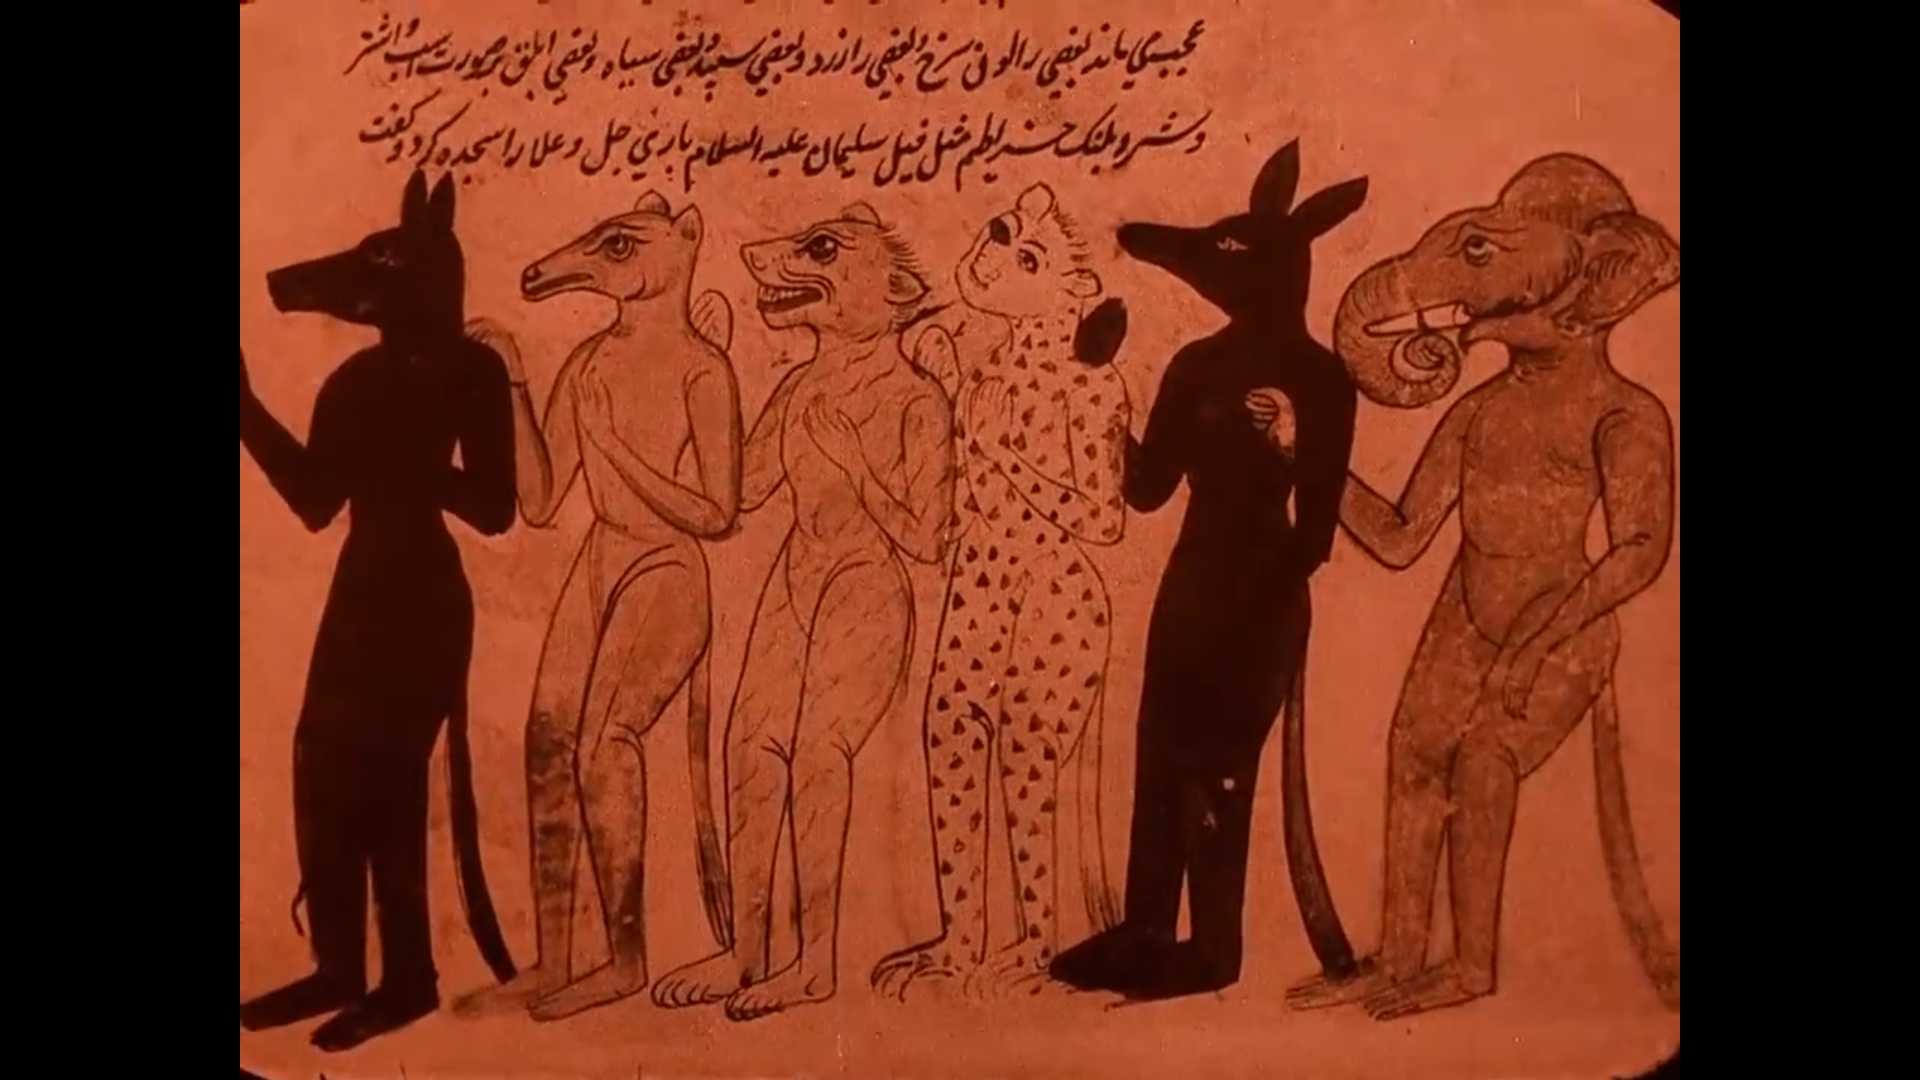 عجب مي ماند بعضي را لون سرخ و بعضي را زرد و بعضي سپید و بعضي سیاه و بعضي ابلق بر صورت اسب و اشتر
و شیر و پلنک مثل فیل سلیمان علیه السلام باري جل و علا را سجده کرد و گفت